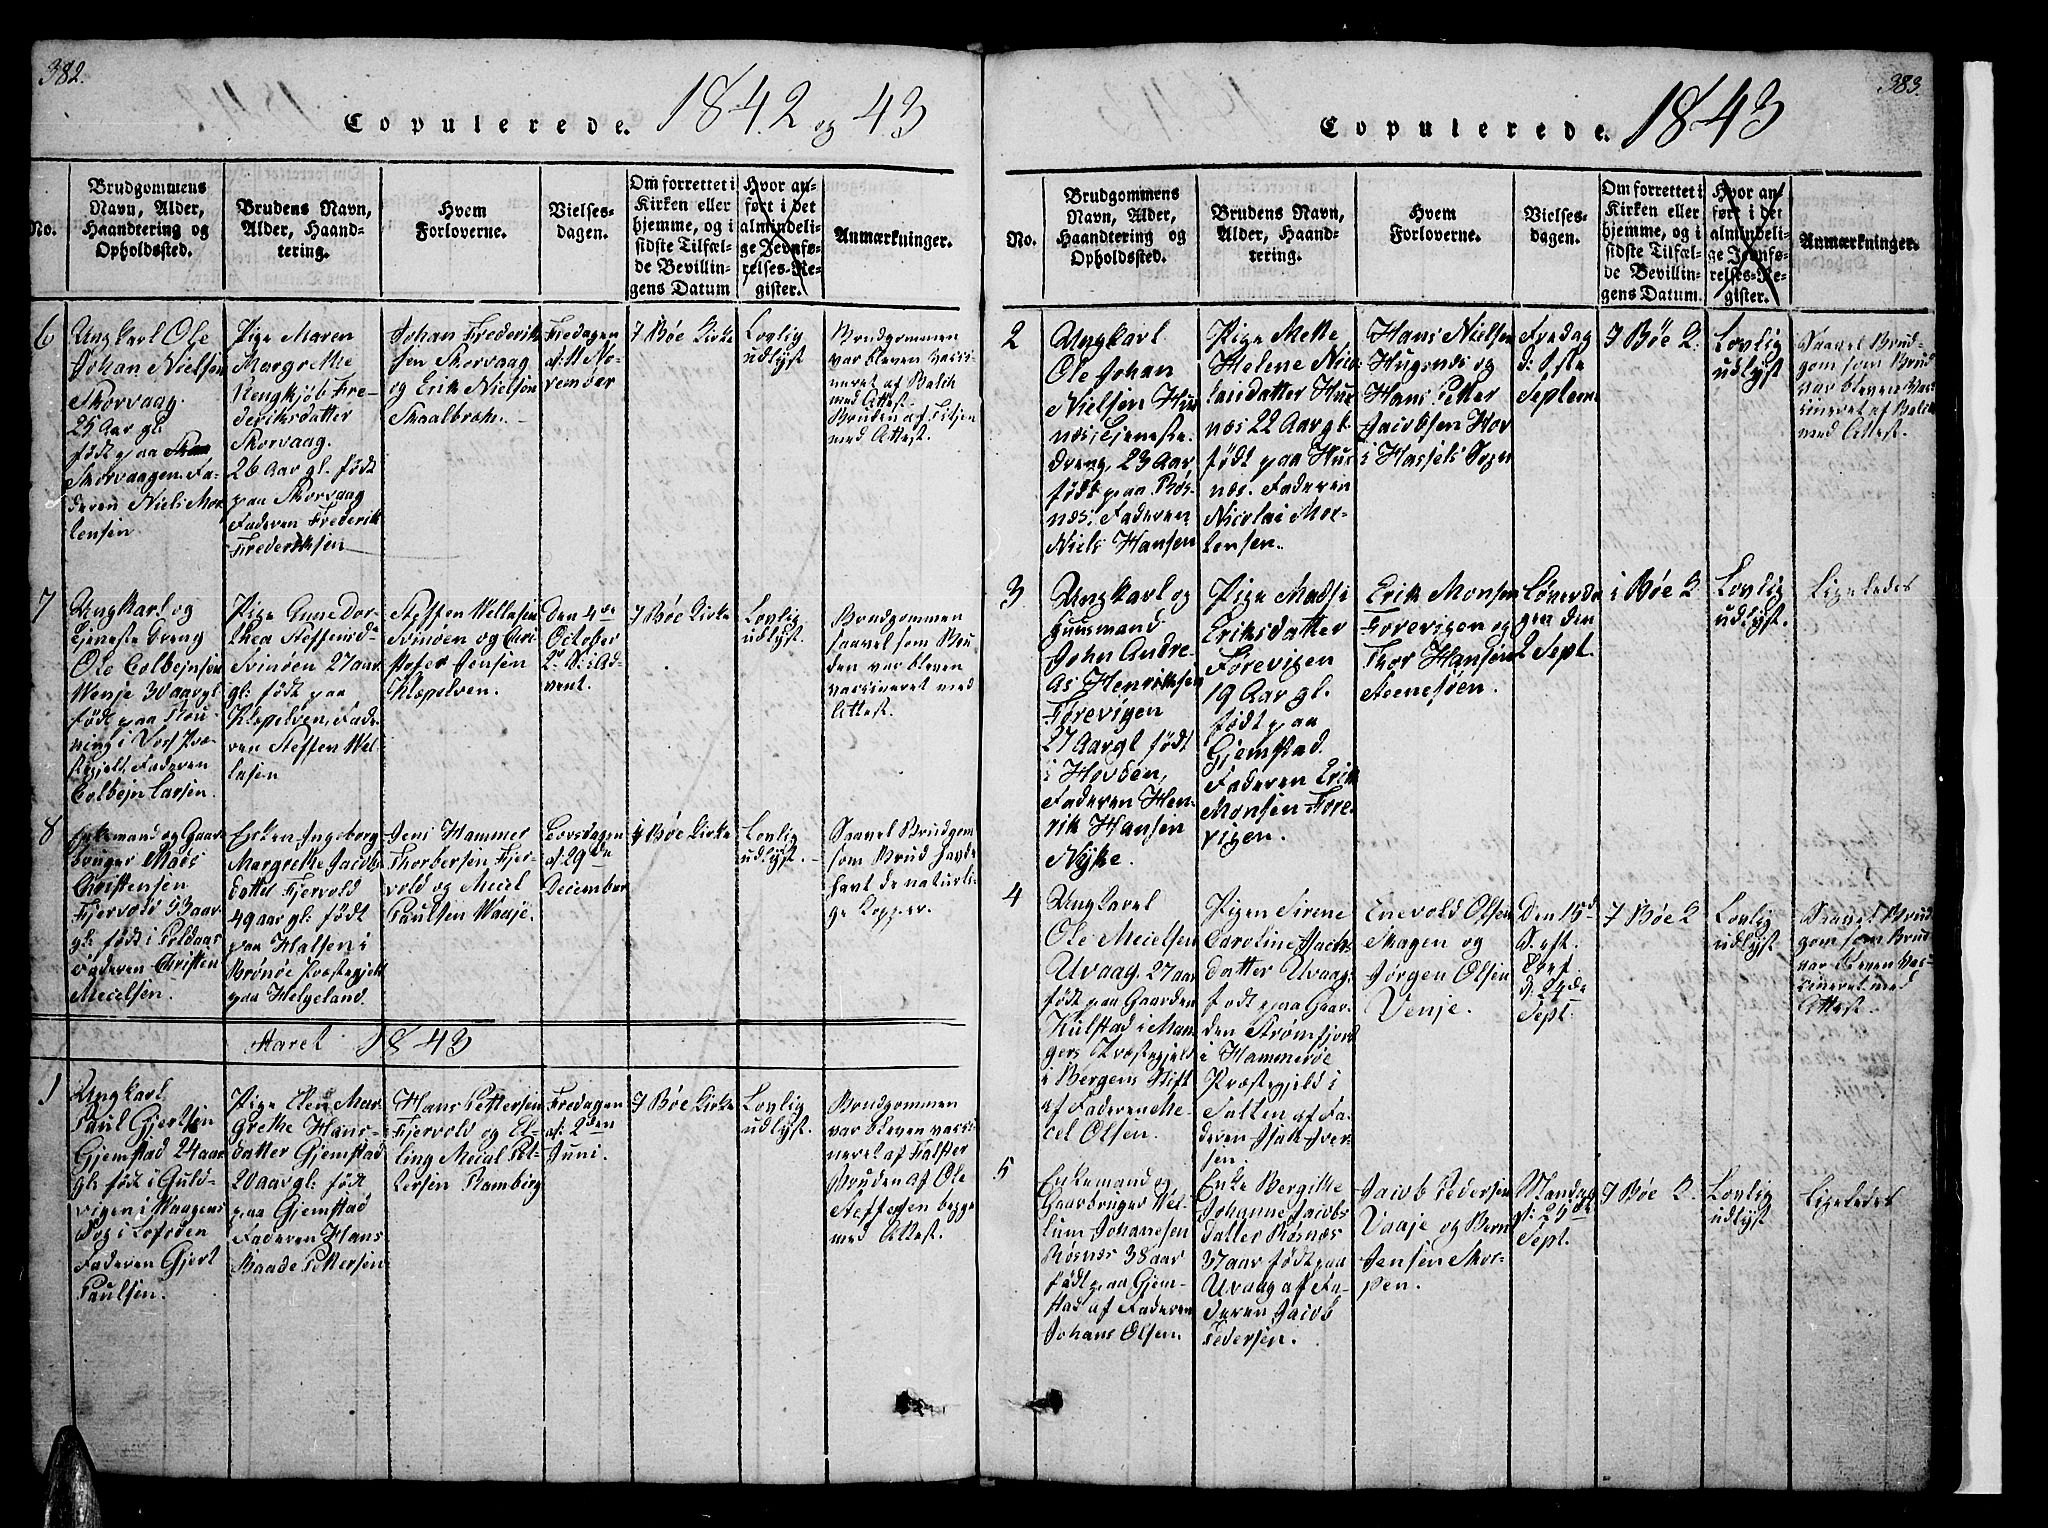 382.
Copulerede. 1842 og 43
No.
Brudgommens
Navn, Alder,
Haandtering og
Opholdssted.
Brudens Navn,
Alder, Haand-
tering.
Hvem
Forloverne.
Vielses-
dagen.
Om forrettet i
Kirken eller
hjemme, og i
sidste Tilfæl-
de Bevillin-
gens Datum
Hvor an-
ført i det
almindeli-
ge Jevnfø-
relses-Re-
gister.
Anmærkninger.
6
Ungkarl Ole
Johan Nielsen
Skorvaag.
25 Aar gl.
født paa
Skorvaagen. Fa-
deren Niels Mor-
tensen
Pige Maren
Margrethe
Rengkjøb Fre-
deriksdatter
Skorvaag.
26 Aar gl. født
paa Skorvaag
Faderen Frederik
Frederiksen
Johan Frederik
sen Skorvaag
og Erik Nielsen
Skaalbrok.
Fredagen
d: 11te No-
vember
I Bøe Kirke
Lovlig
udlyst
Brudgommen
var bleven vacci-
neret af Balch
med Attest.
Bruden af
med Attest.
7
Ungkarl og
Tjeneste Dreng
Ole Colbejnsen
Wenje 30 aar gl
født paa
i Vos Præ-
stegjelt. Faderen
Colbejn Larsen.
Pige Anne Dor-
thea Steffensd-
Svinøen 27 aar
gl: født paa
Klopelven, Fade-
ren Steffen Wel-
lasen
Steffen Wellasen
Svinøen og Chri-
stofer Jensen
Klopelven.
Den 4de
October
vent.
I Bøe Kirke
Lovlig
udlyst.
Brudgommen
saavel som Bru
den var bleven
vaccineret med
Attest.
8
Enkemand og Gaar
bruger Mads
Christensen
Fjervold 53 aar
gl: født i
Faderen Christen
Mecelsen.
Enken Ingeborg
Margrethe Jacobs
datter Fjervold
49 aar gl: født
paa Halsen i
Brønøe Præstegjelt
paa Helgeland.
Jens Hammer
Thorbersen Fjer-
vold og Mecel
Paulsen Waaje.
Torsdagen
d: 29de
December
i Bøe Kirke
Lovlig
udlyst.
Saavel Brudgom
som Brud havde
havt de naturli-
ge Kopper.
Aaret 1843
1
Ungkarl
Paul Gjertsen
Gjemstad 24 aar
gl: født i Guld-
vigen i Waagens
Sog i Lofoden
Faderen Gjert
Paulsen.
Pige Elen Mar
grethe Hans-
datter Gjemstad
20 aar gl: født
paa Gjemstad
Faderen Hans
Baade Pettersen
Hans Pettersen
Fjervold og El-
ling Mecal Pet-
tersen Ramberg
Fredagen
d: 2den
Juni.
I Bøe Kirke
Lovlig
udlyst.
Brudgommen
var bleven vacci
neret af Falster
Bruden af Ole
Steffesen begge
med Attest.
383.
Copulerede. 1843
No.
Brudgommens
Navn, Alder,
Haandtering og
Opholdssted.
Brudens Navn,
Alder, Haand-
tering.
Hvem
Forloverne.
Vielses-
dagen.
Om forrettet i
Kirken eller
hjemme, og i
sidste Tilfæl-
de Bevillin-
gens Datum.
Hvor an-
ført i det
almindeli-
ge Jevnfø-
relses-Re-
gister.
Anmærkninger.
2
Ungkarl
Ole Johan
Nielsen Hus
næs, Tjeneste-
dreng, 23 Aar,
født paa Røs-
næs. Faderen
Niels Hansen
Pige Mette
Helene Nico
laidatter Hus
næs 22 Aar gl.
født paa Hus
næs. Faderen
Nicolai Mor-
tensen.
Hans Nielsen
og
Hans Petter
Jacobsen Hov
i Hassels Sogn
Fredag
d: 1ste
Septem
I Bøe K.
Lovlig
udlyst
Saavel Brud-
gom som Brud
var bleven vac
cineret af Balch
med Attest.
3
Ungkarl og
Huusmand
John Andre-
as Henriksen
Forevigen
27 Aar gl. født
i Hovden,
Faderen Hen-
rik Hansen
Nyke.
Pige Madsi
Eriksdatter
Forevigen
19 Aar gl.
født paa
Gjemstad.
Faderen Erik
Monsen Fore-
vigen.
Erik Monsen
Forevigen og
Thor Hansen
Steenesøen.
Løverda
gen den
2 Sept.
i Bøe K.
Lovlig
udlyst.
Ligeledes
4
Ungkarl
Ole Mecelsen
Uvaag. 27 aar
født paa Gaarden
Kulstad i Man
gers Præstegjeld
i Bergens Stift
af Faderen Me-
cel Olsen.
Pigen Sirene
Caroline Isach-
datter Uvaag.
født paa Gaar-
den Strømfjord
i Hammerøe
Præstegjeld i
Salten af Fa-
deren Isak Iver-
sen.
Enevold Olsen
Skagen og
Jørgen Olsen
Venje.
Den 15d.
d. 24de
Sept.
I Bøe K
Lovlig
udlyst.
Saavel Brud
gom som Brud
var bleven vac-
cineret med
Attest.
5
Enkemand og
Gaarbruger Wel-
lum Johanesen
Røsnæs 38 aar
født paa Gjem-
stad af Faderen
Johans Olsen.
Enke Bergithe
Johanne Jacobs
datter Røsnæs
37 aar født paa
Uvaag af Fa-
deren Jacob
Pedersen.
Jacob Pedersen
Vaaje og Bernt
Jensen Skor-
pen.
Mandag
d: 25de
Sept.
I Bøe K.
Lovlig
udlyst
Ligeledes